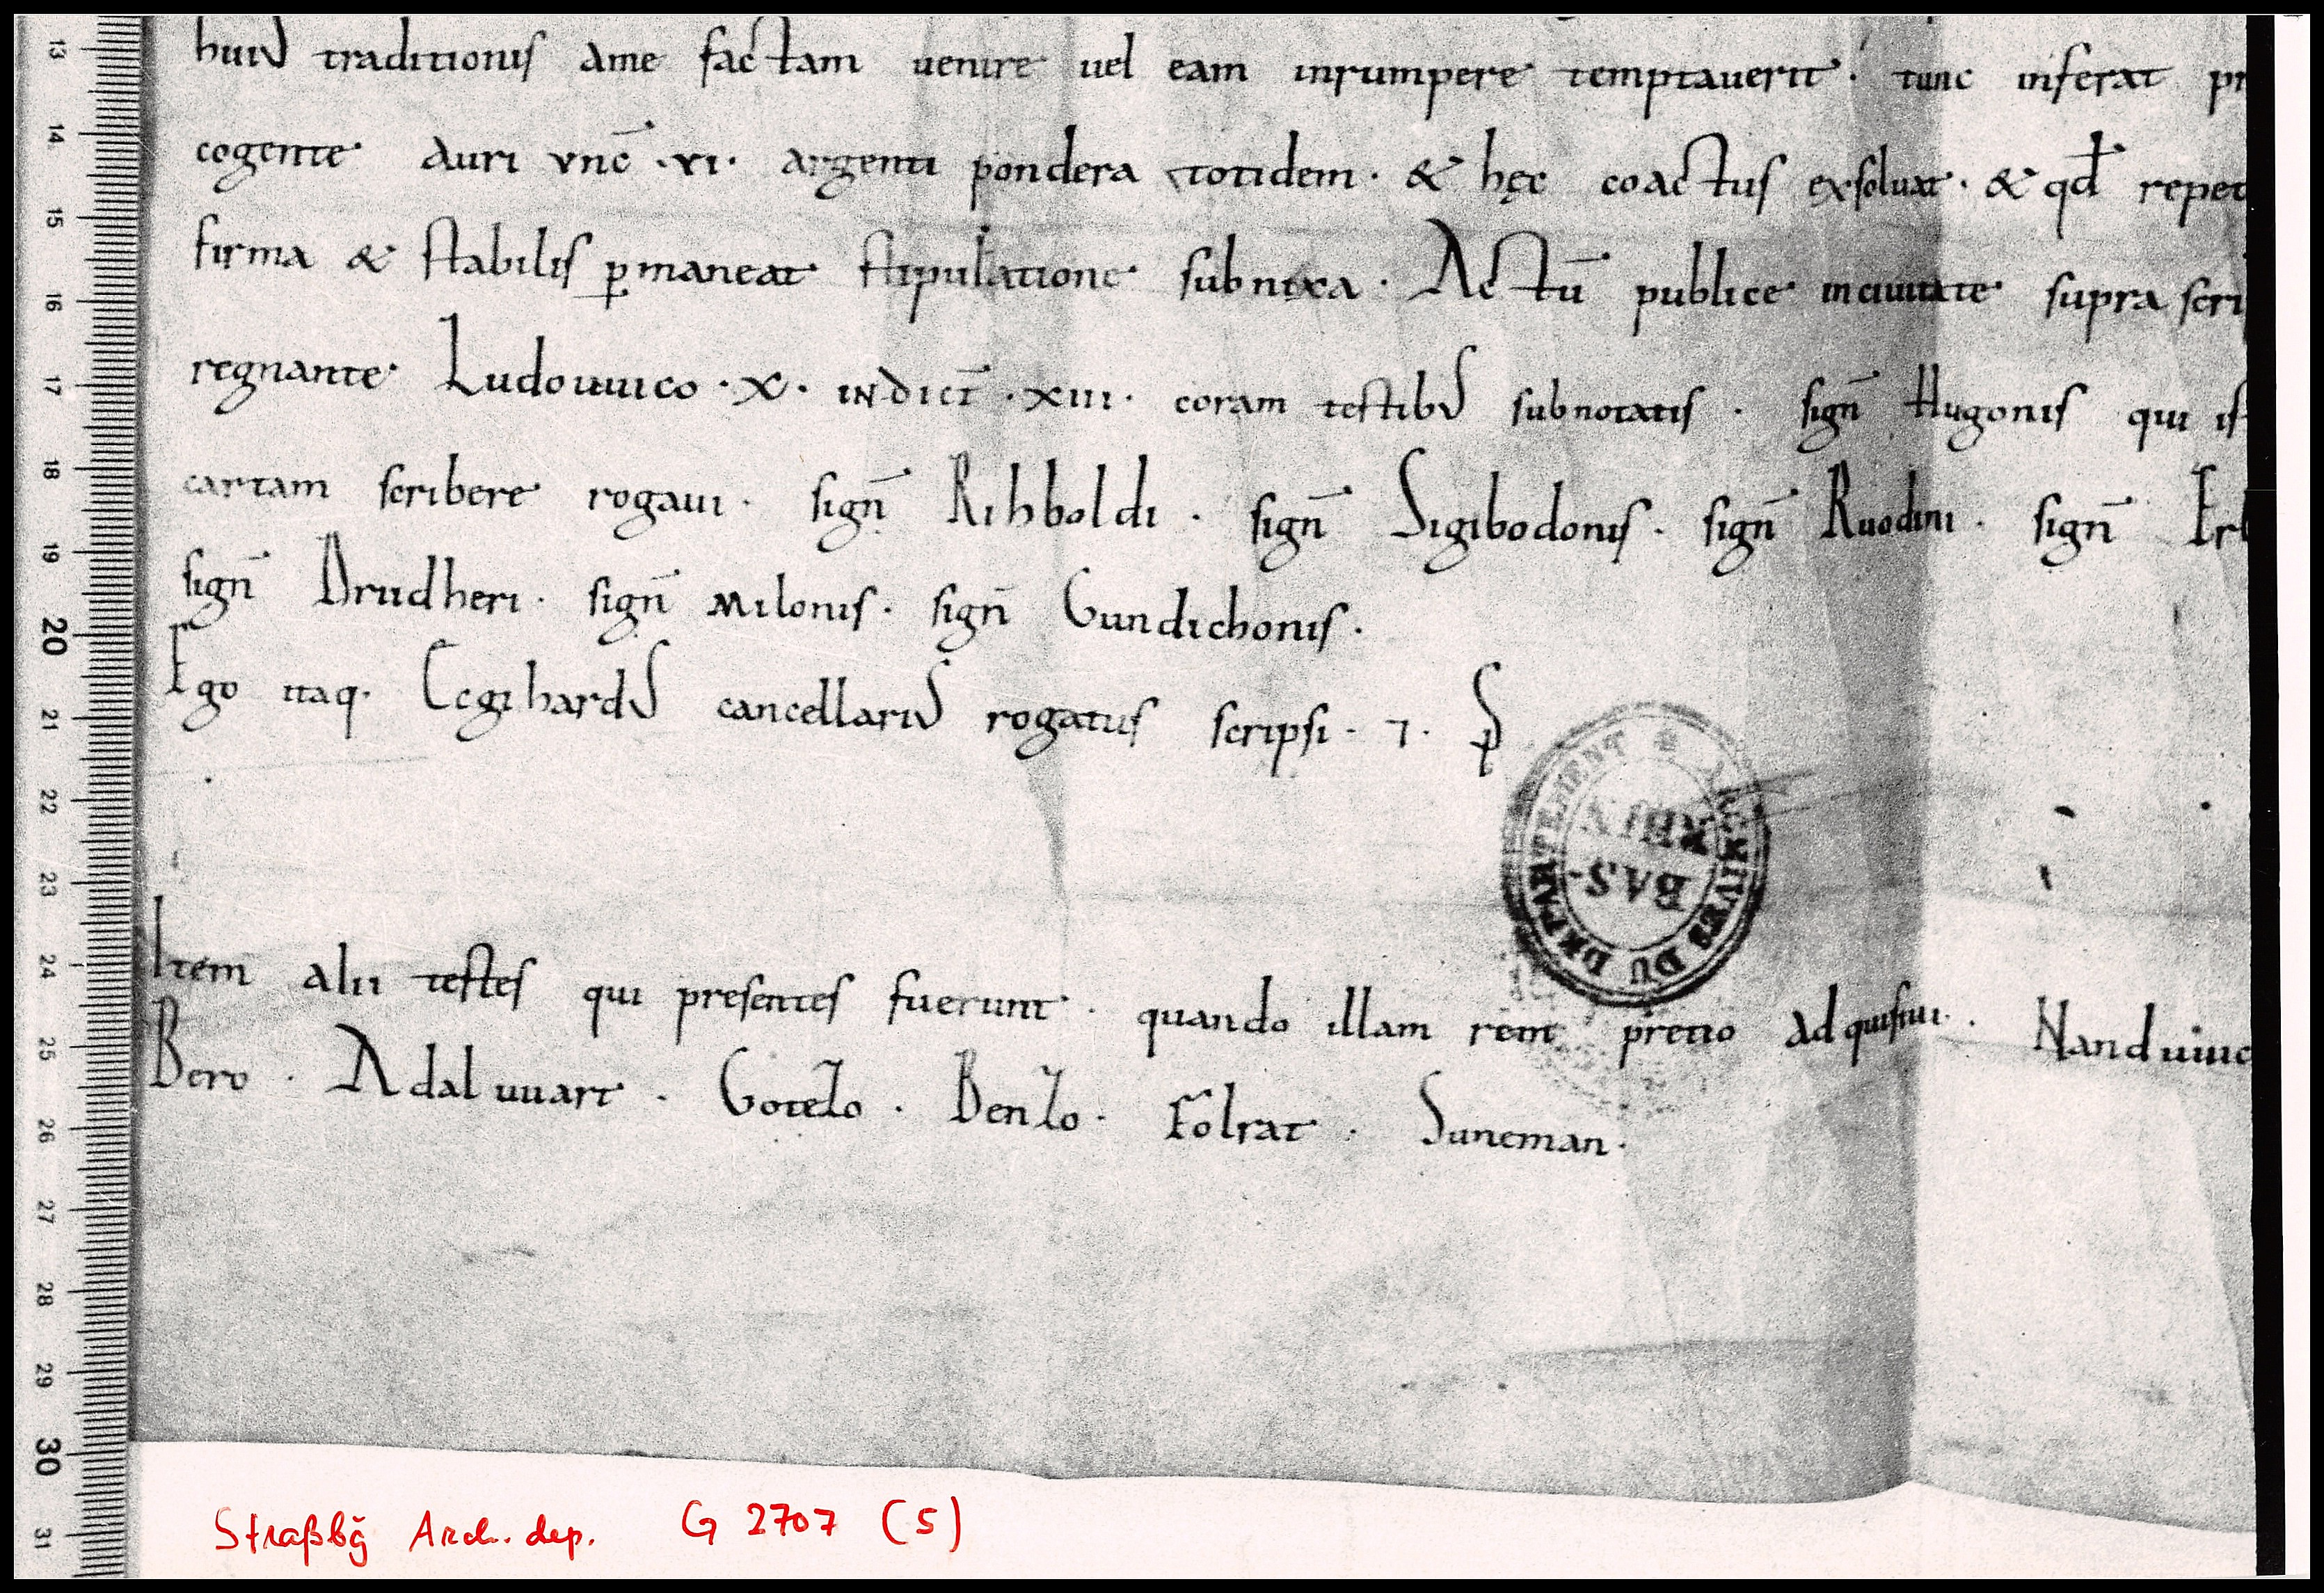 huiꝰ traditionis ame factam uenire uel eam inrumpere temptauerit · tunc inferat pr
cogente auri vnc̄ · vi · argenti pondera totidem · & hęc coactus exsoluat · & qđ repet
firma & stabilis ꝑmaneat stipulatione subnixa · Actū publice inciuitate supra scri
regnante Ludouuico · X · INdict̄ · XIII · coram testibꝰ subnotatis · sign̄ Hugonis qui is
cartam scribere rogaui · sign̄ Rihboldi · sign̄ Sigibodonis · sign̄ Ruodini · sign̄ Erl
sign̄ Drudheri · sign̄ Milonis · sign̄ Gundichonis ·
Ego itaq· Eegihardꝰ cancellariꝰ rogatus scripsi · ⁊ ·
Item alii testes qui presentes fuerunt · quando illam rem pretio adquisiui · Nanduuic
Bero · Adaluuart · Gotezo · Benzo · Folrat · Suneman ·
ARCHIVES DU DEPARTEMENT * BAS-RHIN
Straßbg̃ Arch. dep. G 2707 (5)
13
14
15
16
17
18
19
20
21
22
23
24
25
26
27
28
29
30
31